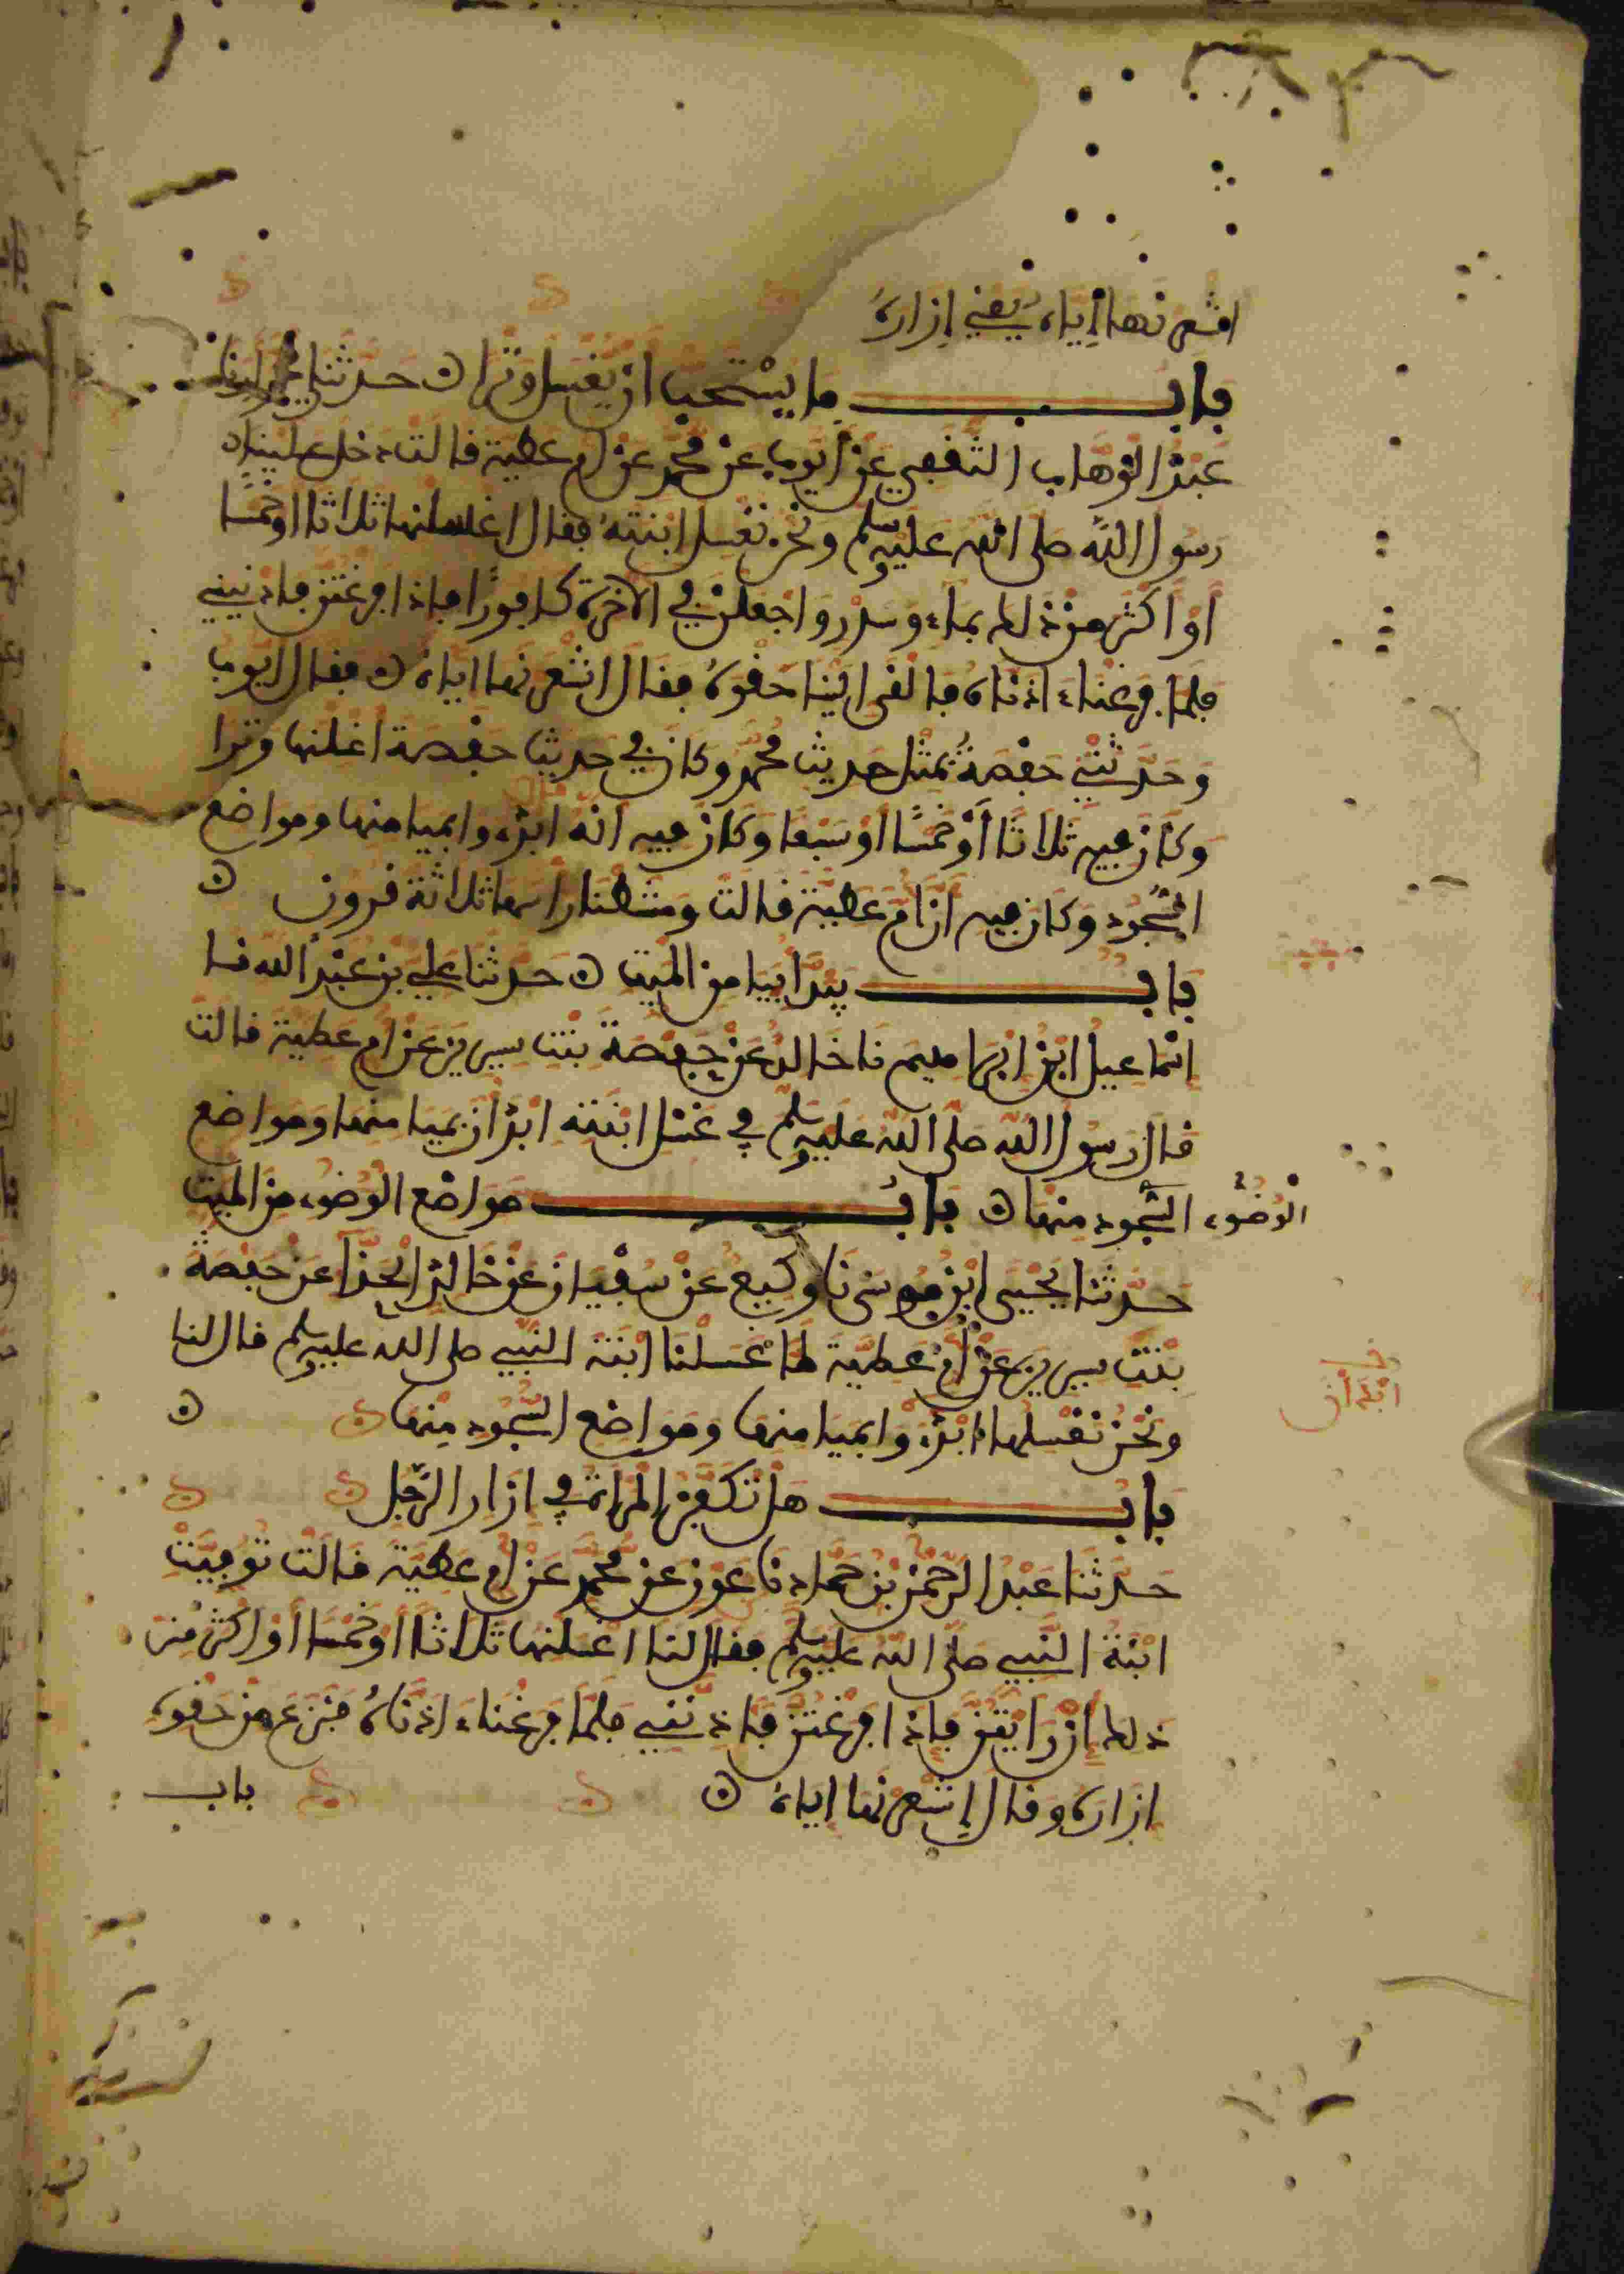 اشعرنها إياه يعني إزاره
باب ما يستحب ان يغسل وترا حدثنا محمد انا
عبد الوهاب الثقفي عن أيوب عن محمد عن ام عطية قالت دخل علينا
رسول الله صلى الله عليه وسلم ونحن نغسل ابنته فقال اغسلنها ثلاثا اوخمسا
أو اكثر من ذلك بماء وسدر واجعلن في الاخرة كافورا فإذا فرغتن فاذنيني
فلما فرغنا ءاذناه فالقى الينا حقوه فقال اشعرنها اياه فقال ايوب
وحدثتني حفصة بمثل حديث محمد وكان في حديث حفصة اغسلنها وترا
وكان فيه ثلاثا أو خمسا او سبعا وكان فيه انه ابدءوا بميامنها ومواضع
السجود وكان فيه ان ام عطية قالت ومشطنا راسها ثلاثة قرون
باب يبدا بميامن الميت حدثنا علي بن عبد الله نا
اسماعيل ابن ابراهيم نا خالد عن حفصة بنت سيرين عن ام عطية قالت
قال رسول الله صلى الله عليه وسلم في غسل ابنته ابدأن بميامنها ومواضع
الوضوء السجود منها باب مواضع الوضوء من الميت
حدثنا يحيى ابن موسى نا وكيع عن سفيان عن خالد الحذا عن حفصة
بنت سيرين عن أم عطية لما غسلنا ابنة النبي صلى الله عليه وسلم قال لنا
ونحن نغسلها ابدءوا بميامنها ومواضع السجود منها
ابدأن
باب هل تكفن المراة في ازار الرجل
حدثنا عبد الرحمن بن حماد نا عون عن محمد عن ام عطية قالت توفيت
ابنة النبي صلى الله عليه وسلم فقال لنا اغسلنها ثلاثا أو خمسا أو اكثر من
ذلك إن رايتن فإذا فرغتن فاذنني فلما فرغنا ءاذناه فنزع من حقوه
ازاره وقال إشعرنها اياه باب